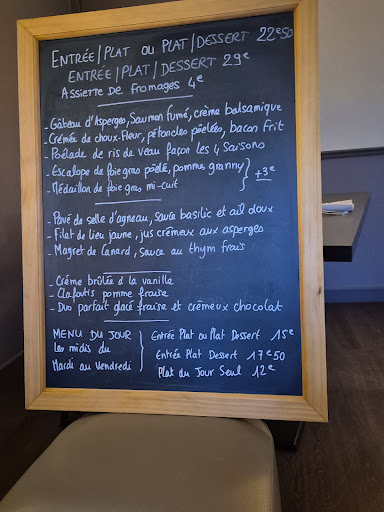 ENTRÉE/PLAT OU PLAT/DESSERT 22€50
ENTRÉE/PLAT/DESSERT 29€
ASSIETTE DE FROMAGES 4€
- Gâteau d'Asperges, Saumon fumé, crème balsamique
- Crémée de choux-fleur, pétoncles poêlées, bacon frit
- Poêlade de ris de veau façon les 4 Saisons
- Escalope de foie gras poêlé, pomme granny
- Médaillon de foie gras mi-cuit
+3€
- Pavé de selle d'agneau, sauce basilic et ail doux
- Filet de lieu jaune, jus crémeux aux asperges
- Magret de Canard, sauce au thym frais
- Crème brûlée à la vanille
- Clafoutis pomme fraise
- Duo parfait glacé fraise et crémeux chocolat
MENU DU JOUR
Les midis du
Mardi au Vendredi
Entrée Plat ou Plat Dessert 15€
Entrée Plat Dessert 17€50
Plat du Jour Seul 12€